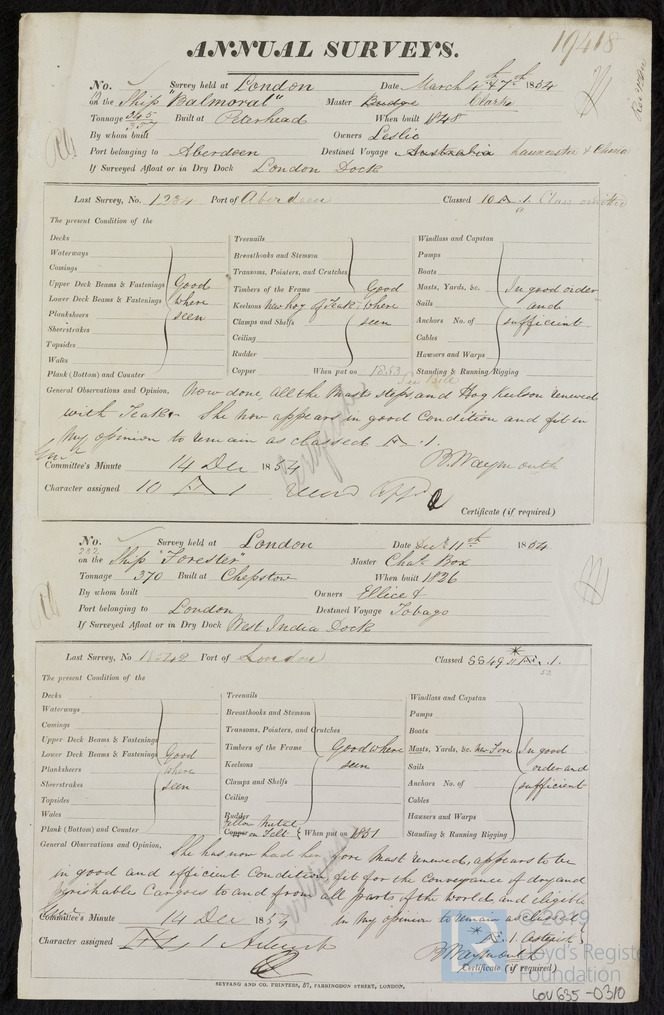 19418
ANNUAL SURVEYS.
No. Survey held at London Date March 4th & 7th 1854
on the Ship "Balmoral" Master Clark
Tonnage 345 Built at Peterhead When built 1848
By whom built Owners Leslie
Port belonging to Aberdeen Destined Voyage Australia Launceston & China
If Surveyed Afloat or in Dry Dock London Dock
Last Survey, No. 1234 Port of Aberdeen Classed 10 A.1. Class omitted
The present Condition of the
Decks
Waterways
Comings
Upper Deck Beams & Fastenings
Lower Deck Beams & Fastenings
Planksheers
Sheerstrakes
Topsides
Wales
Plank (Bottom) and Counter
Good where seen
Treenails
Breasthooks and Stemson
Transoms, Pointers, and Crutches
Timbers of the Frame
Keelsons New hog of Teak;
Clamps and Shelfs
Ceiling
Rudder
Copper When put on 1853
Good where seen
Windlass and Capstan
Pumps
Boats
Masts, Yards, &c.
Sails
Anchors No. of
Cables
Hawsers and Warps
Standing & Running Rigging
In good order and sufficient
General Observations and Opinion, Now done, all the Mast steps and Hog Keelson renewed
with Teak. She now appears in good Condition and fit in
my opinion to remain as classed A.1.
B. Waymouth
Committee's Minute 14 Dec 1854
Character assigned 10 A 1
Certificate (if required)
No. Survey held at London Date Dec. 11th 1854
on the Ship "Forester" Master Chas. Box
Tonnage 370 Built at Chepstow When built 1826
By whom built Owners Ellice &
Port belonging to London Destined Voyage Tobago
If Surveyed Afloat or in Dry Dock West India Dock
Last Survey, No Port of London Classed SS 49 * .1.
52
The present Condition of the
Decks
Waterways
Comings
Upper Deck Beams & Fastenings
Lower Deck Beams & Fastenings
Planksheers
Sheerstrakes
Topsides
Wales
Plank (Bottom) and Counter
Good where seen
Treenails
Breasthooks and Stemson
Transoms, Pointers, and Crutches
Timbers of the Frame
Keelsons
Clamps and Shelfs
Ceiling
Rudder
Yellow Metal
Copper on Felt When put on 1851
Good where seen
Windlass and Capstan
Pumps
Boats
Masts, Yards, &c. New Fore
Sails
Anchors No. of
Cables
Hawsers and Warps
Standing & Running Rigging
In good order and sufficient
General Observations and Opinion, She has now had her Fore Mast renewed, appears to be
in good and efficient Condition, fit for the Conveyance of dry and
perishable Cargoes to and from all parts of the world, and eligible
in my opinion to remain as classed
* .1. asterisk
B. Waymouth
Committee's Minute 14 Dec 1854
Character assigned 1
Certificate (if required)
SEYFANG AND CO. PRINTERS, 57, FARRINGDON STREET, LONDON.
© 2019
Lloyd's Register
Foundation
LON635-0310